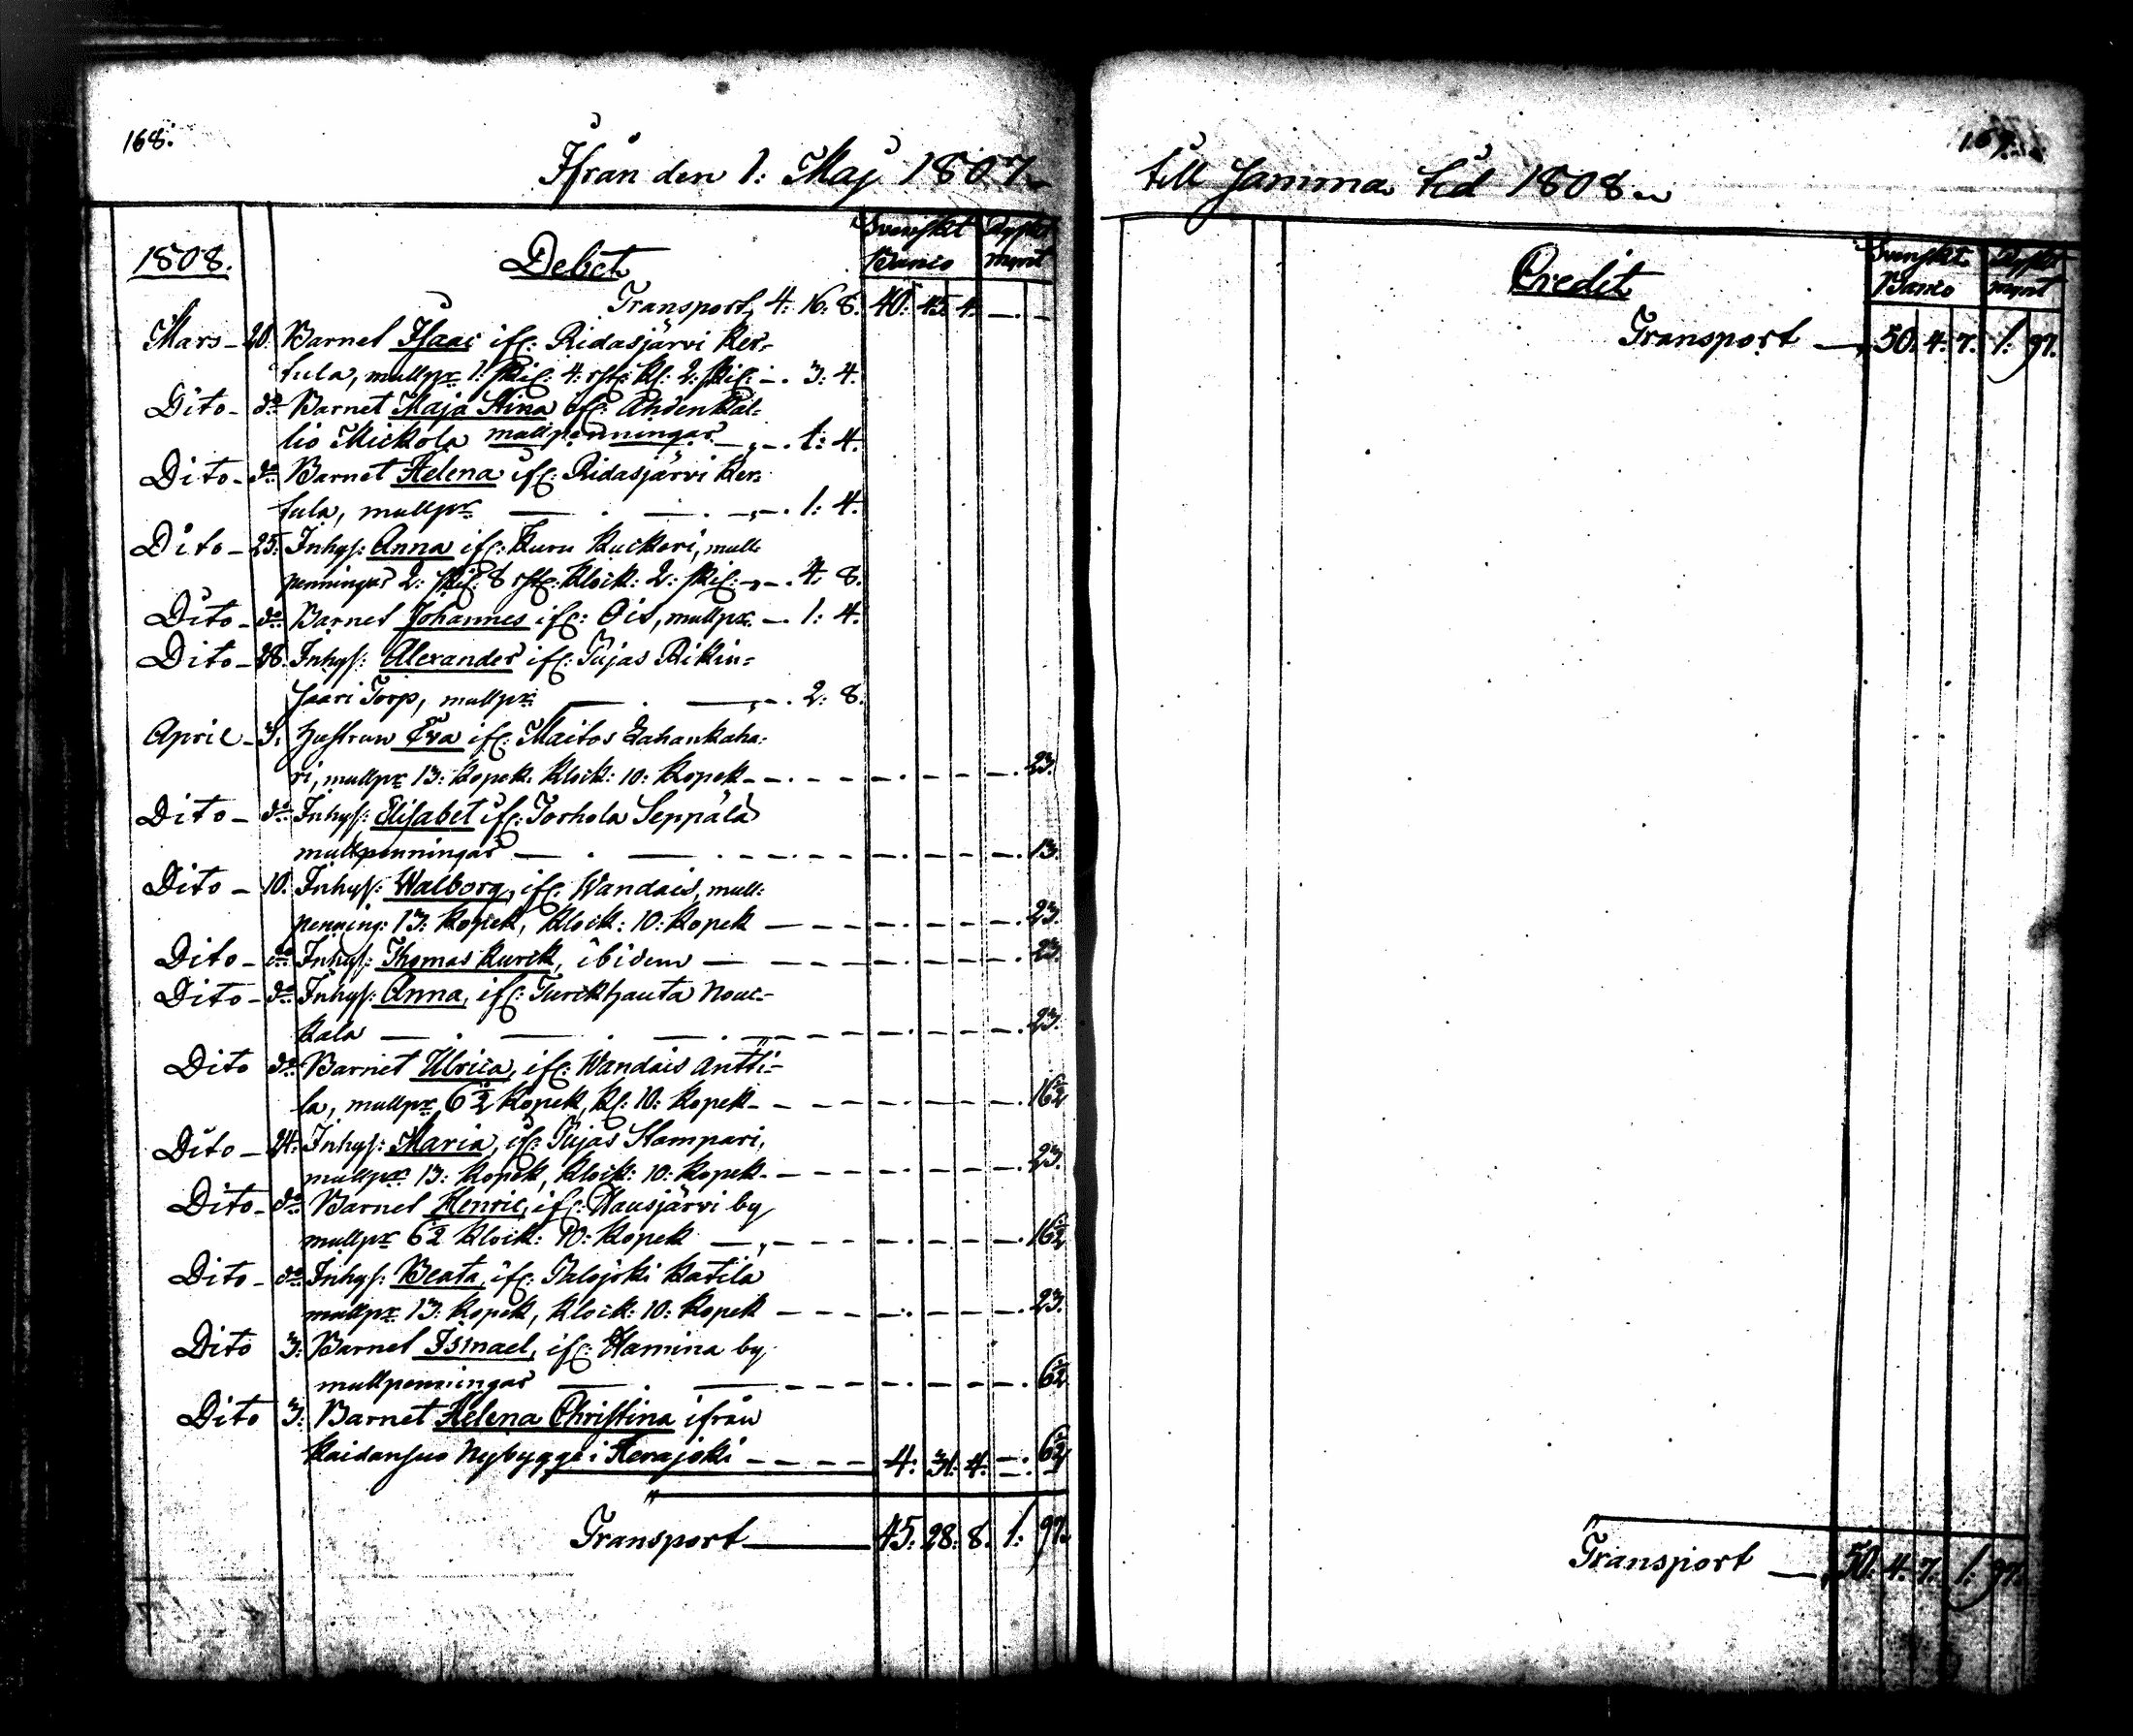 168.
Ifrån den 1. Maj 1807
1808.
Debet
Svenskt Banco
Ryskt mynt
Transport, 4: 16: 8. 40: 45: 4. — . —
Mars - 20. Barnet Isaac ifr: Ridasjärvi Ker-
tula, mullpr 1: skil: 4: rst: kl: 2: skil: - . 3: 4.
Dito - do Barnet Maja Stina ifr: Ahdenkal-
lio Mickola mullpenningar - . 1: 4.
Dito - do Barnet Helena ifr: Ridasjärvi Ker-
tula, mullpr — . — . - . 1: 4.
Dito - 25. Inhys: Anna ifr: Kuru Kuckari, mull-
penningar 2: skil: 8 rst: klock: 2: skil: - . 4. 8.
Dito - do Barnet Johannes ifr: Ois, mullpr - . 1: 4.
Dito - 28. Inhys: Alexander ifr: Pujas Rikin-
saari Torp, mullpr — . — . 2: 8.
April - 3. Hustrun Eva ifr: Maitos Lahankaha-
ri, mullpr 13: kopek. klock: 10: kopek - . 23.
Dito - do Inhys: Elisabet ifr: Torhola Seppälä
mullpenningar — . — . 13.
Dito - 10. Inhys: Walborg, ifr: Wandais, mull-
penning: 13: kopek, klock: 10: kopek — . 23.
Dito - do Inhys: Thomas Kurck, ibidem — . 23.
Dito - do Inhys: Anna, ifr: Turckhauta Nouc-
kala — . — . — . 23.
Dito do Barnet Ulrica, ifr: Wandais Antti-
la, mullpr 6½ kopek, kl: 10: kopek - . 16½
Dito - 24. Inhys: Maria, ifr: Pujas Stampari,
mullpr 13: kopek, klock: 10: kopek - . 23.
Dito - do Barnet Henric, ifr: Hausjärvi by
mullpr 6½ klock: 10: kopek — . 16½
Dito - do Inhys: Beata, ifr: Palojoki Katila
mullpr 13: kopek, klock: 10: kopek — . 23.
Dito 3: Barnet Ismael, ifr: Hamina by
mullpenningar — . — . 6½
Dito 3: Barnet Helena Christina ifrån
Kaidansuo Nybygge i Herajoki - - - - 4: 31: 4. — . 6½
Transport — 45: 28: 8. 1: 97.
169.
till samma tid 1808.
Credit
Svenskt Banco
Ryskt mynt
Transport — 50: 4: 7. 1: 97.
Transport — 50: 4: 7. 1: 97.